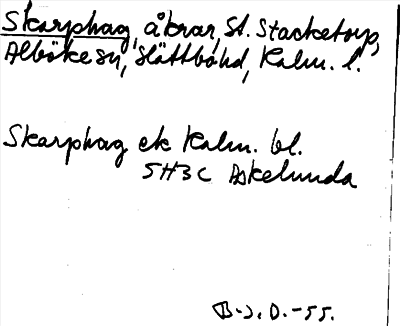 Skarphag, åkrar, St. Stacketorp,
Alböke sn, Slättbo hd, Kalm. l.
Skarphag ek Kalm. bl.
5H3C Askelunda
B.-J. D. -55.